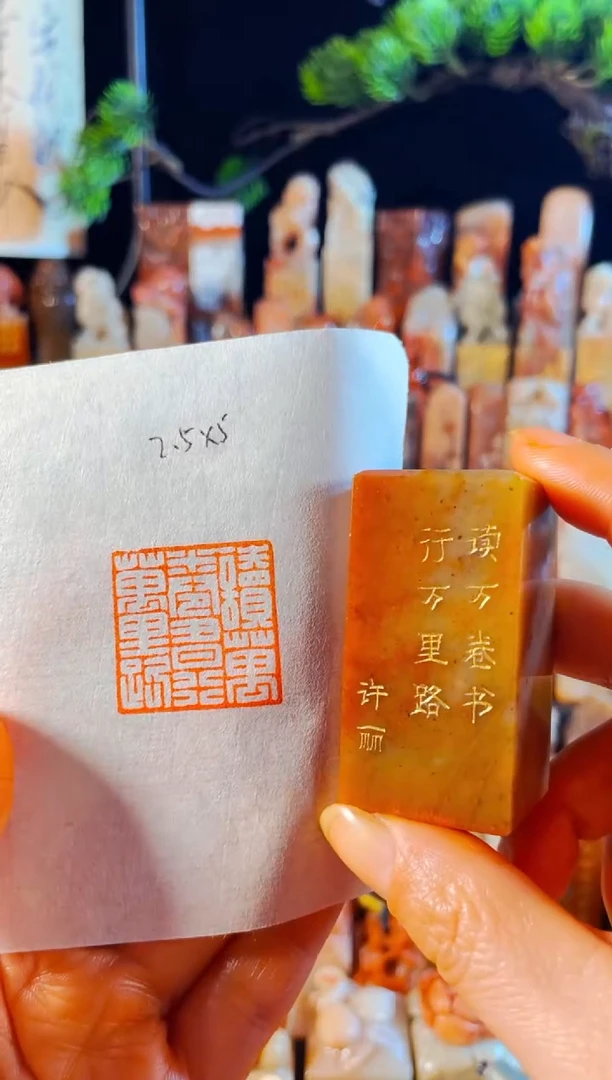 2.5×5
讀萬
卷書行
萬里路
读万卷书
行万里路
许丽